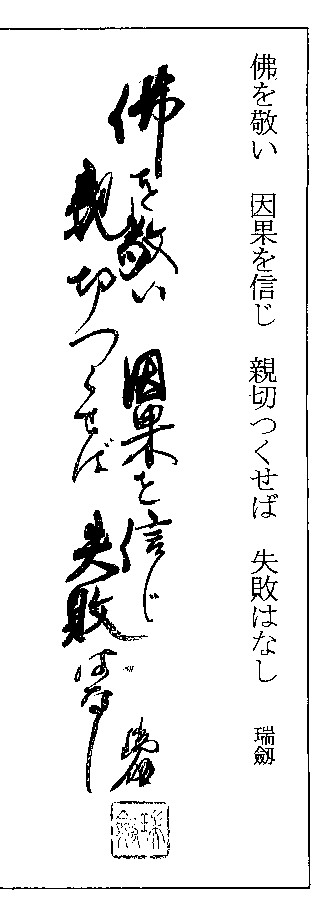 佛を敬い　因果を信じ　親切つくせば　失敗はなし　瑞劔
佛を敬い　因果を信じ
親切つくせば　失敗はなし
瑞劔
瑞劔